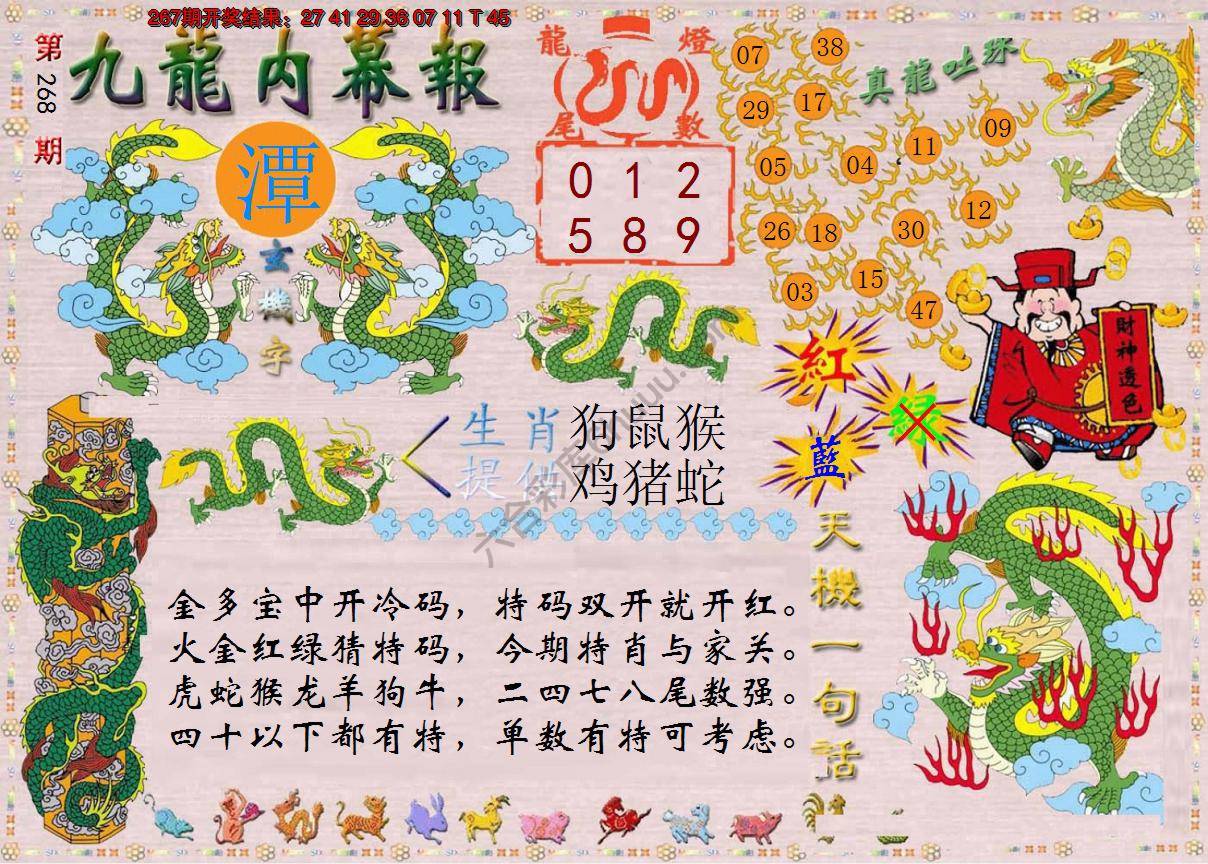 267期开奖结果：27 41 29 36 07 11 T 45
第268期
九龍内幕報
潭
玄機字
龍燈
尾數
0 1 2
5 8 9
真龍吐珠
07 38
29 17
11 09
05 04
12
26 18 30
15
03 47
財神透色
紅
绿
藍
生肖
狗鼠猴
提供
鸡猪蛇
天機一句話
金多宝中开冷码，特码双开就开红。
火金红绿猜特码，今期特肖与家关。
虎蛇猴龙羊狗牛，二四七八尾数强。
四十以下都有特，单数有特可考虑。